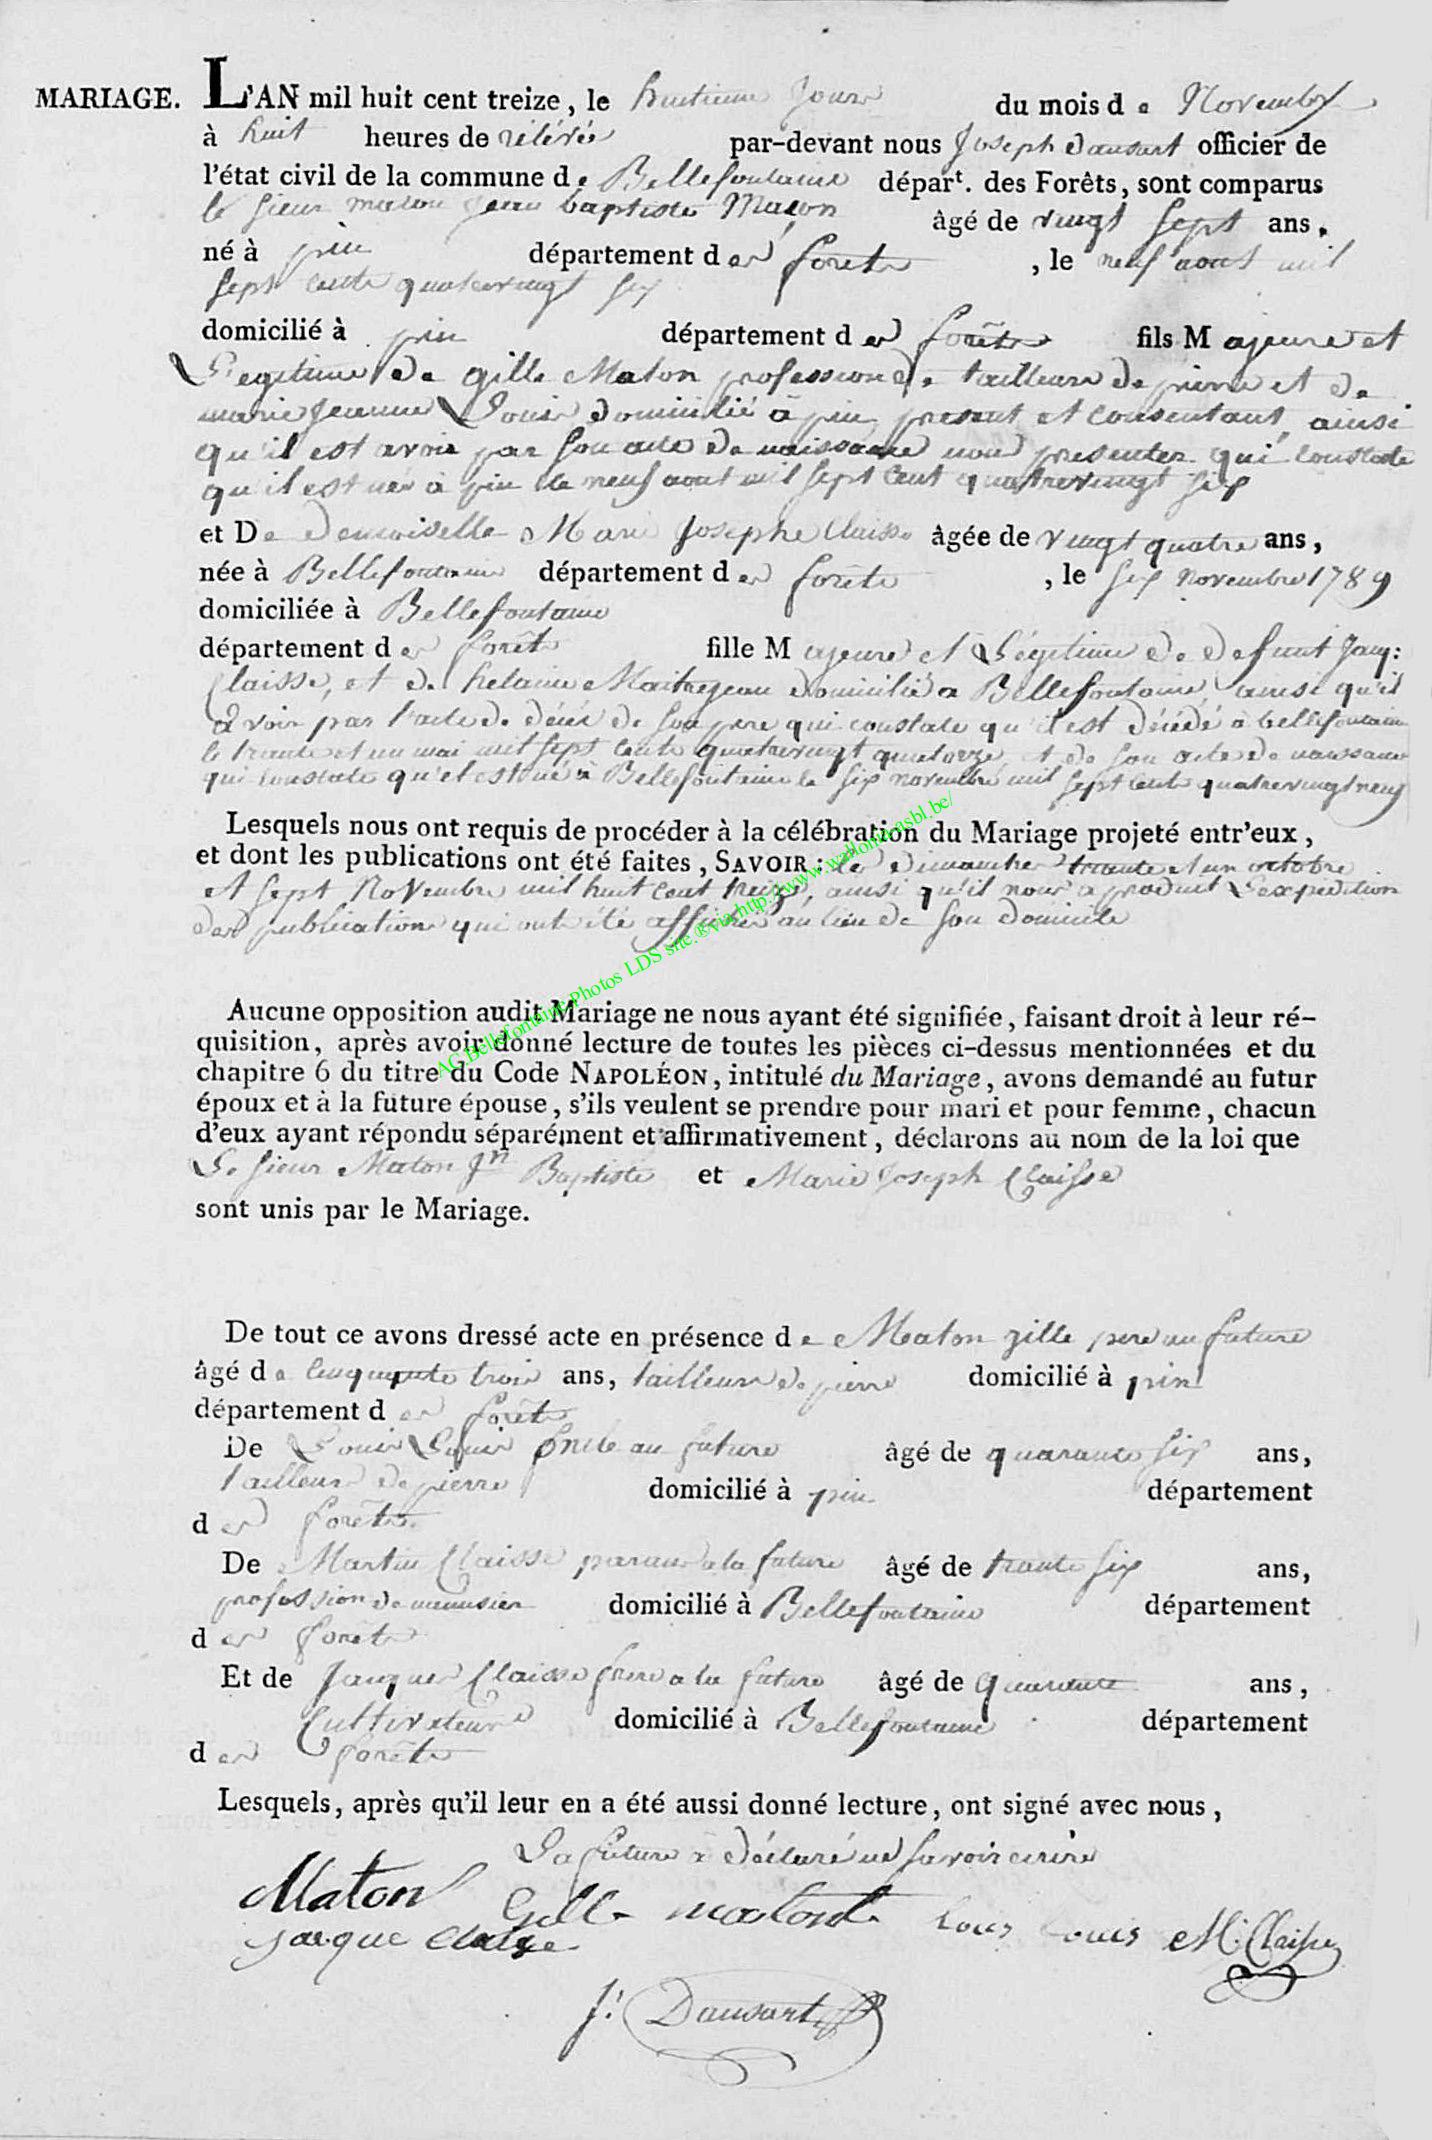 MARIAGE. L'AN mil huit cent treize, le huitieme jour du mois de Novembre
à huit heures de rélévée par-devant nous Joseph Dausart officier de
l'état civil de la commune de Bellefontaine départ. des Forêts, sont comparus
le sieur maton jean baptiste Maton âgé de vingt sept ans,
né à pin département des forets, le neuf aout mil
sept cents quatrevingt six
domicilié à pin département des forêts fils Majeure et
Legitime de gille Maton profession de tailleure de pierre et de
marie Jeanne Louis domicilié à pin present et consentant, ainsi
qu'il est avoir par son acte de naissance nous presenter qui constate
qu'il est née à pin le neuf aout mil sept cent quatrevingt six
et De Demoiselle Marie Josephe Claisse âgée de vingt quatre ans,
née à Bellefontaine département des forêts, le six novembre 1789
domiciliée à Bellefontaine
département des forêts fille Majeure et Légitime de defunt Jacq:
Claisse, et de helaine Maitrejean domicilié a Bellefontaine, ainsi qu'il
à voir par l'acte de décés de son pere qui constate qu'il est décédé à bellefontaine
le trante et un mai mil sept cents quatrevingt quatorze, et de son acte de naissance
qui constate qu'el est né à Bellefontaine le six novembre mil sept cents quatrevingt neuf
Lesquels nous ont requis de procéder à la célébration du Mariage projeté entr'eux,
et dont les publications ont été faites, SAVOIR: les dimanches trante et un octobre
et sept Novembre mil huit cent treize, ainsi qu'il nous a produit L'expedition
des publications qui ont été affichés au lieu de son domicile
AC.Bellefontaine.Photos LDS site.®via http://www.wallonia-asbl.be/
Aucune opposition audit Mariage ne nous ayant été signifiée, faisant droit à leur ré-
quisition, après avoir donné lecture de toutes les pièces ci-dessus mentionnées et du
chapitre 6 du titre du Code NAPOLÉON, intitulé du Mariage, avons demandé au futur
époux et à la future épouse, s'ils veulent se prendre pour mari et pour femme, chacun
d'eux ayant répondu séparément et affirmativement, déclarons au nom de la loi que
Le sieur Maton Jn Baptiste et Marie Joseph Claisse
sont unis par le Mariage.
De tout ce avons dressé acte en présence de Maton gille pere au future
âgé de cinquante trois ans, tailleure de pierre domicilié à pin
département des forêts
De Louis Louis oncle au future âgé de quarante six ans,
tailleur de pierre domicilié à pin département
des forêts
De Martin Claisse parans a la future âgé de trante six ans,
profession de menusier domicilié à Bellefontaine département
des forêts
Et de Jacques Claisse frere a la future âgé de quarante ans,
Cultivateure domicilié à Bellefontaine département
des forêts
Lesquels, après qu'il leur en a été aussi donné lecture, ont signé avec nous,
La future à déclaré ne savoir ecrire
Maton Gille maton Louis Louis M. Claisse
jacque claisse
J: Dausart